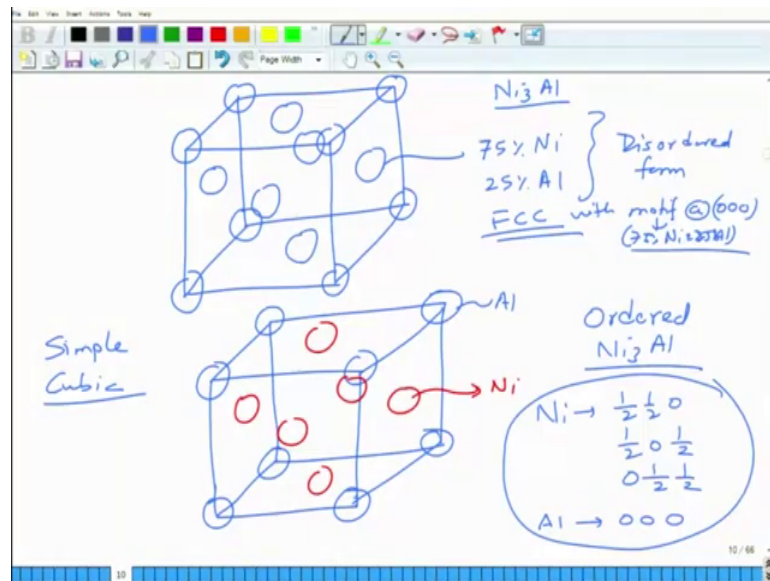 File Edit View Insert Actions Tools Help
B I
Page Width
Ni3Al
75% Ni
25% Al
Disordered
form
FCC with motif @ (000)
(75% Ni 25% Al)
Al
Simple
Cubic
Ni
Ordered
Ni3Al
Ni → 1/2 1/2 0
1/2 0 1/2
0 1/2 1/2
Al → 0 0 0
10 / 66
10